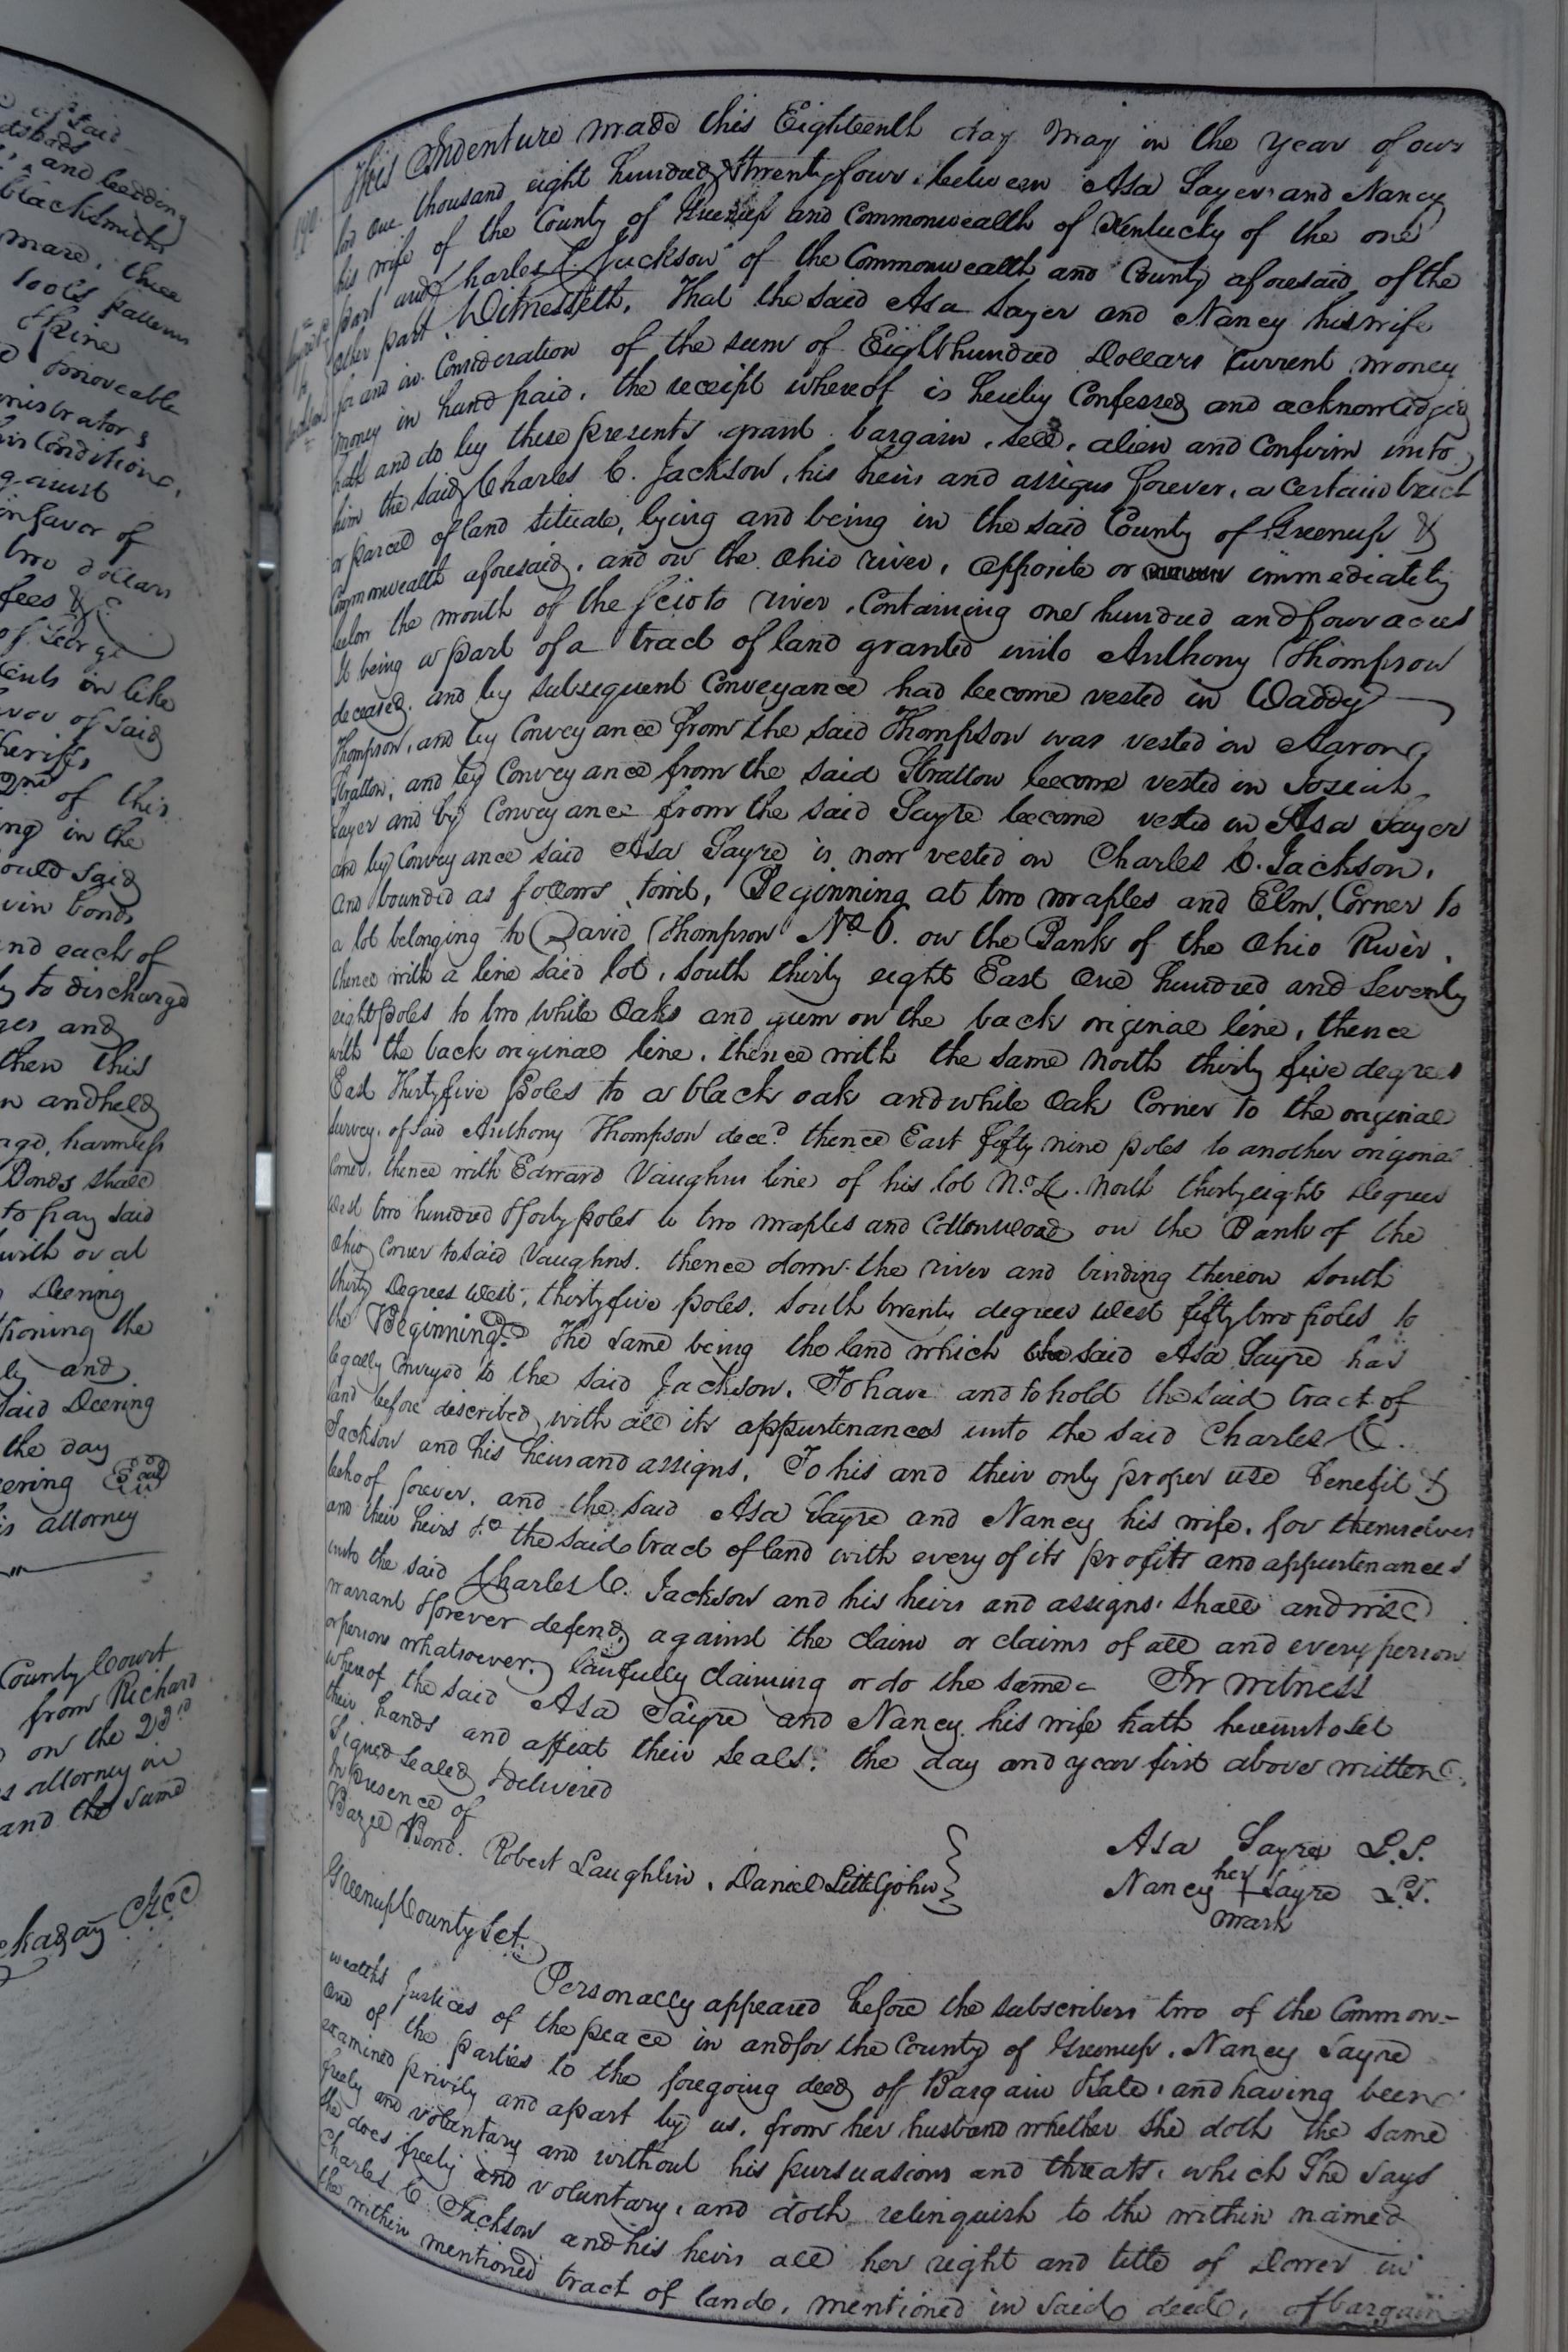 of said
and bedding
blacksmiths
mare, three
tools
moveable
his Condition,
in favor of
two dollars
fees &c
of George
in like
of said
of this
ing in the
ould said
and each of
to discharge
ges and
then this
and held
harmless
Bonds shall
to pay said
with or at
Deering
tioning the
and
said Deering
the day
eering Seal
attorney
County Court
from Richard
on the 23rd
attorney in
and the same
190.
Jackson
This Indenture made this Eighteenth day May in the Year of our
lord One thousand eight hundred & twenty four, between Asa Sayer and Nancy
his wife of the County of Greenup and Commonwealth of Kentucky of the one
part and Charles C. Jackson of the Commonwealth and County aforesaid, of the
other part Witnesseth, That the said Asa Sayer and Nancy his wife
for and in Consideration of the sum of Eight hundred Dollars Current money
money in hand paid, the receipt whereof is hereby Confessed and acknowledged
hath and do by these presents grant bargain, sell, alien and Confirm unto
him the said Charles C. Jackson, his heirs and assigns forever, a certain tract
or parcel of land situate, lying and being in the said County of Greenup &
Commonwealth aforesaid, and on the Ohio river, opposite or immediately
below the mouth of the Scioto river, Containing one hundred and four acres
It being a part of a tract of land granted unto Anthony Thompson
deceased, and by subsequent Conveyance had become vested in Waddy
Thompson, and by Conveyance from the said Thompson was vested in Aaron
Stratton, and by Conveyance from the said Stratton become vested in Josiah
Sayer and by Conveyance from the said Sayre become vested in Asa Sayer
and by Conveyance said Asa Sayre is now vested in Charles C. Jackson,
and bounded as follows towit, Beginning at two maples and Elm, Corner to
a lot belonging to David Thompson No 6. on the Bank of the Ohio River,
thence with a line said lot, South thirty eight East One hundred and Seventy
eight poles to two white Oaks and gum on the back original line, thence
with the back original line, thence with the same North thirty five degrees
East Thirty five poles to a black oak and white Oak Corner to the original
Survey, of said Anthony Thompson decd. thence East fifty nine poles to another original
Corner, thence with Edward Vaughns line of his lot No. 4. North thirty eight Degrees
west two hundred & forty poles to two maples and Cottonwood on the Bank of the
Ohio Corner to said Vaughns. thence down the river and binding thereon South
thirty Degrees West, thirty five poles, South twenty degrees West fifty two poles to
the Beginning. The same being the land which the said Asa Sayre has
legally Conveyed to the said Jackson. To have and to hold the said tract of
land before described with all its appurtenances unto the said Charles C.
Jackson and his heirs and assigns, To his and their only proper use Benefit &
behoof forever, and the said Asa Sayre and Nancy his wife, for themselves
and their heirs &c the said tract of land with every of its profits and appurtenances
unto the said Charles C. Jackson and his heirs and assigns shall and will
warrant & forever defend, against the claim or claims of all and every person
or persons whatsoever, lawfully claiming or do the same. In witness
whereof the said Asa Sayre and Nancy his wife hath hereunto set
their hands and affixt their seals, the day and year first above written.
Signed sealed & delivered
In presence of
Bazel Bond. Robert Laughlin, Daniel Littlejohn
Asa Sayre L.S.
Nancy her + Sayre L.S.
mark
Greenup County Sct.
Personally appeared before the subscribers two of the Common-
wealths Justices of the peace in and for the County of Greenup. Nancy Sayre
one of the parties to the foregoing deed of Bargain & Sale, and having been
examined privily and apart by us, from her husband whether she doth the same
freely and voluntary and without his pursuasions and threats, which She says
she does freely and voluntary, and doth relinquish to the within named
Charles C. Jackson and his heirs all her right and title of Dower in
the within mentioned tract of land, mentioned in said deed, of bargain